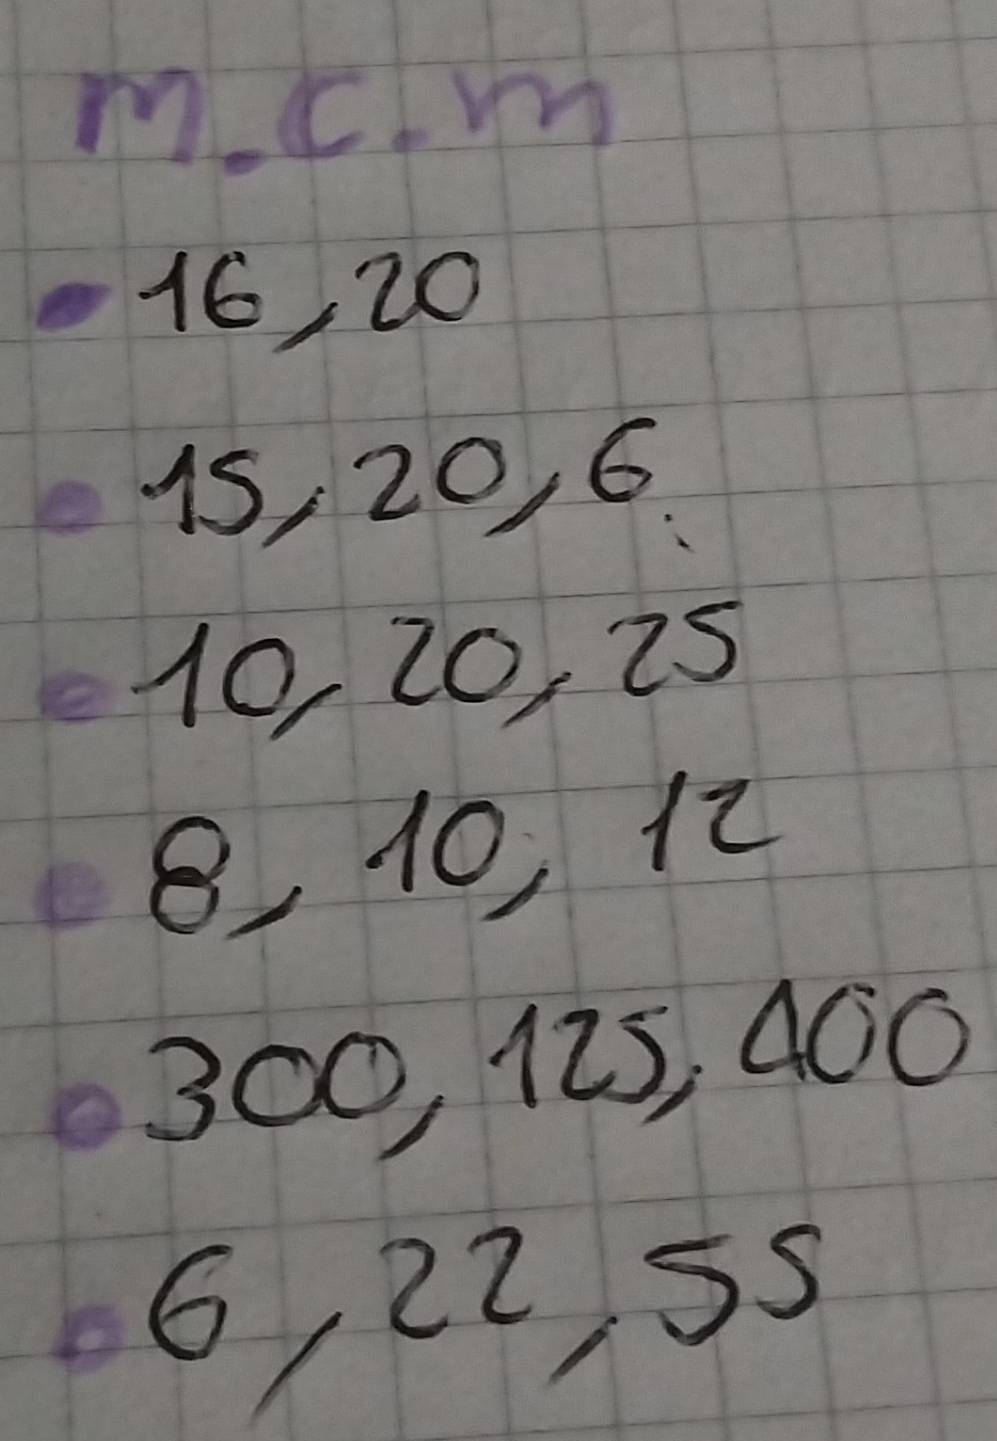 m.c.m
16, 20
15, 20, 6
10, 20, 25
8, 10, 12
300, 125, 400
6, 22, 55